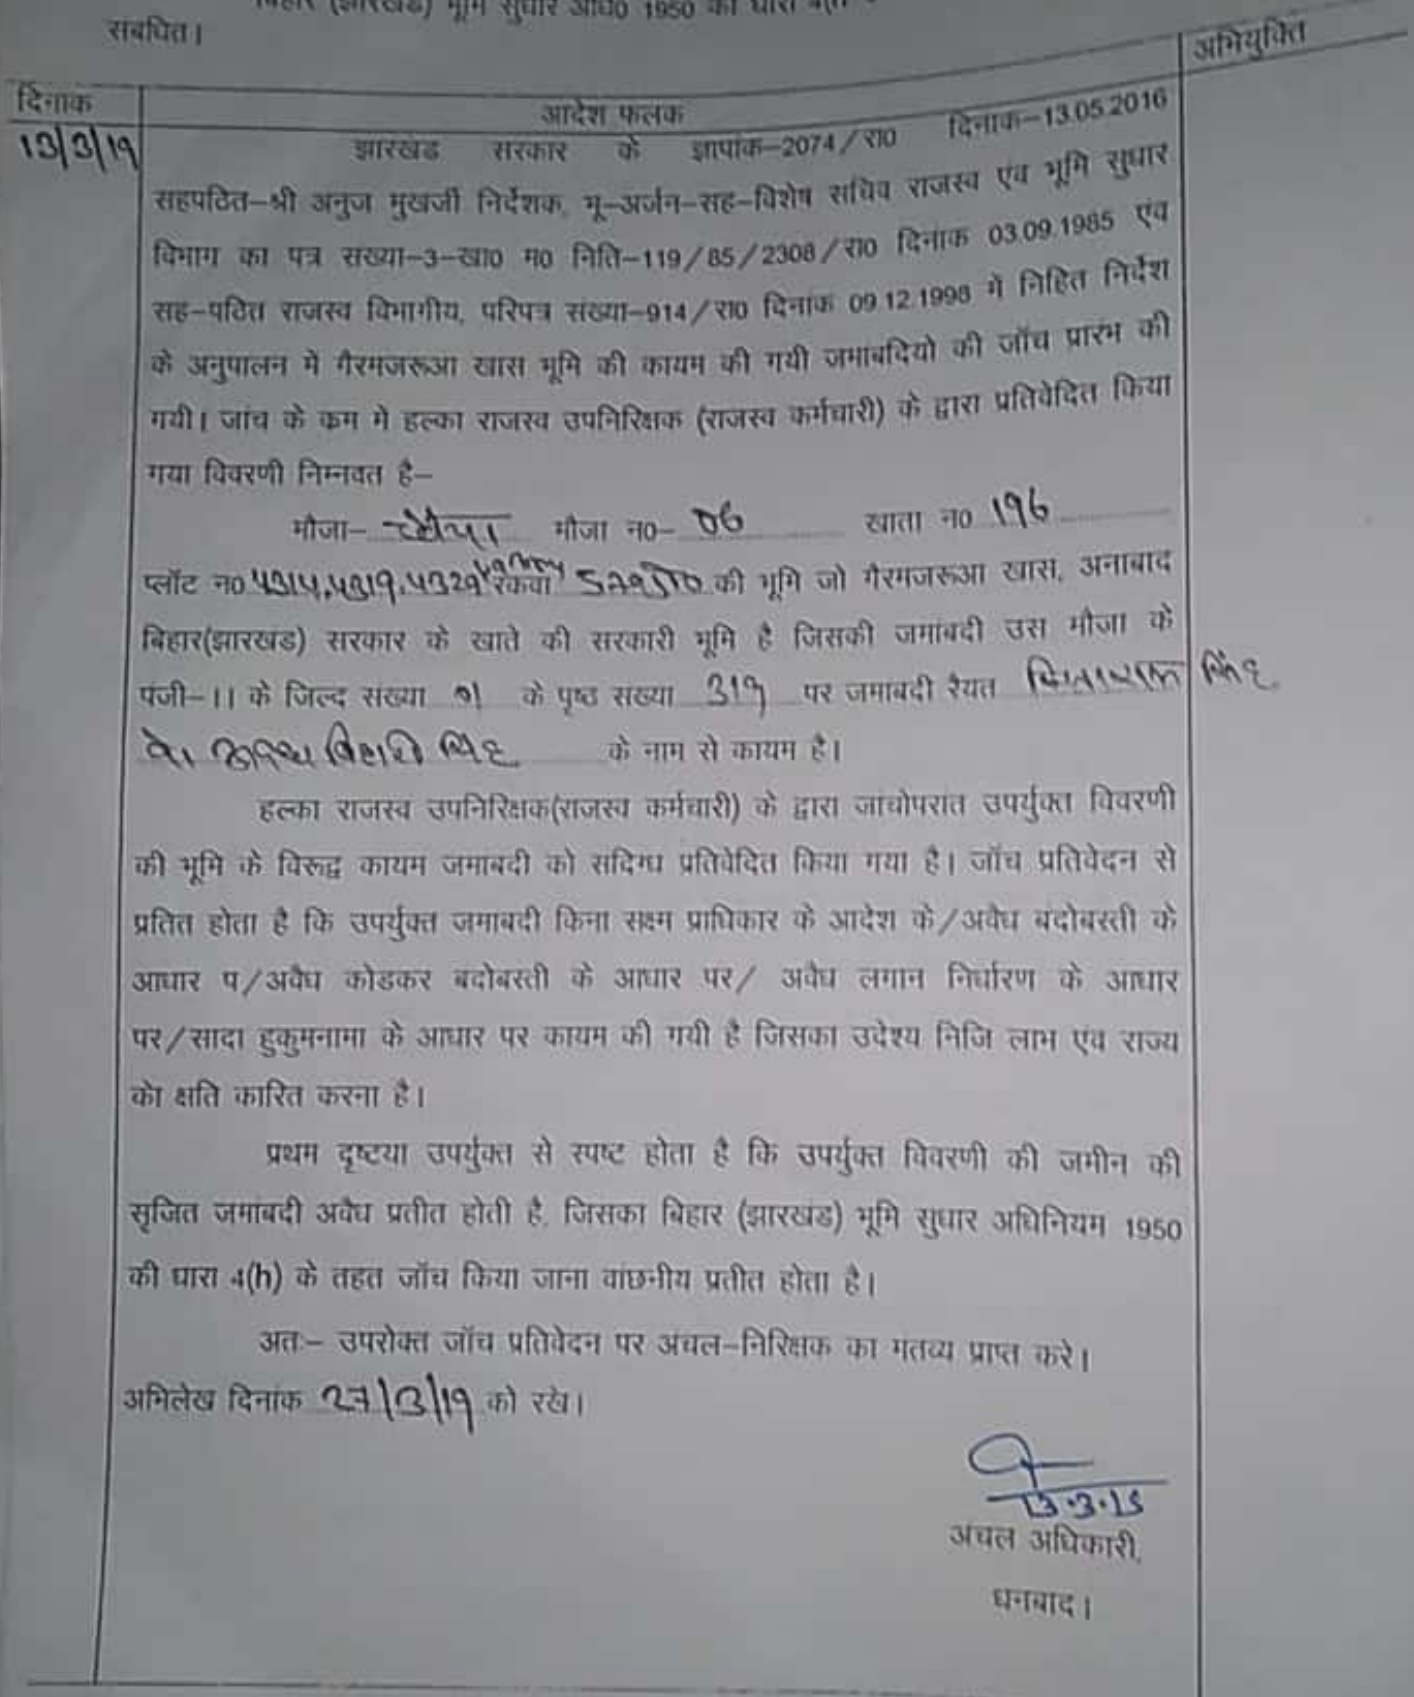 बिहार (झारखंड) भूमि सुधार अधि0 1950 की धारा
संबंधित।
अभियुक्ति
दिनांक
आदेश फलक
13/3/19
झारखंड सरकार के ज्ञापांक-2074/रा0 दिनांक-13.05.2016
सहपठित-श्री अनुज मुखर्जी निर्देशक, भू-अर्जन-सह-विशेष सचिव राजस्व एंव भूमि सुधार
विभाग का पत्र संख्या-3-खा0 म0 निति-119/85/2308/रा0 दिनांक 03.09.1985 एंव
सह-पठित राजस्व विभागीय, परिपत्र संख्या-914/रा0 दिनांक 09.12.1998 में निहित निर्देश
के अनुपालन में गैरमजरूआ खास भूमि की कायम की गयी जमाबंदियो की जाँच प्रारंभ की
गयी। जांच के कम मे हल्का राजस्व उपनिरिक्षक (राजस्व कर्मचारी) के द्वारा प्रतिवेदित किया
गया विवरणी निम्नवत है-
मौजा- मौजा न0- 06 खाता न0 196
प्लॉट न0 4314,4319,4329 रकवा की भूमि जो गैरमजरूआ खास, अनाबाद
बिहार(झारखंड) सरकार के खाते की सरकारी भूमि है जिसकी जमांबदी उस मौजा के
पंजी-11 के जिल्द संख्या 01 के पृष्ठ संख्या 319 पर जमाबंदी रैयत सिंह
पे० अवध बिहारी सिंह के नाम से कायम है।
हल्का राजस्व उपनिरिक्षक(राजस्व कर्मचारी) के द्वारा जांचोपरांत उपर्युक्त विवरणी
की भूमि के विरूद्व कायम जमाबंदी को संदिग्ध प्रतिवेदित किया गया है। जाँच प्रतिवेदन से
प्रतित होता है कि उपर्युक्त जमाबंदी किना सक्ष्म प्राधिकार के आदेश के/अवैध बंदोबस्ती के
आधार प/अवैध कोडकर बदोबस्ती के आधार पर/ अवैध लगान निर्धारण के आधार
पर/सादा हुकुमनामा के आधार पर कायम की गयी है जिसका उदेश्य निजि लाभ एंव राज्य
को क्षति कारित करना है।
प्रथम दृष्टया उपर्युक्त से स्पष्ट होता है कि उपर्युक्त विवरणी की जमीन की
सृजित जमांबदी अवैध प्रतीत होती है, जिसका बिहार (झारखंड) भूमि सुधार अधिनियम 1950
की धारा 4(h) के तहत जाँच किया जाना वांछनीय प्रतीत होता है।
अतः- उपरोक्त जाँच प्रतिवेदन पर अंचल-निरिक्षक का मंतव्य प्राप्त करे।
अभिलेख दिनांक 27/3/19 को रखे।
अंचल अधिकारी,
धनबाद।